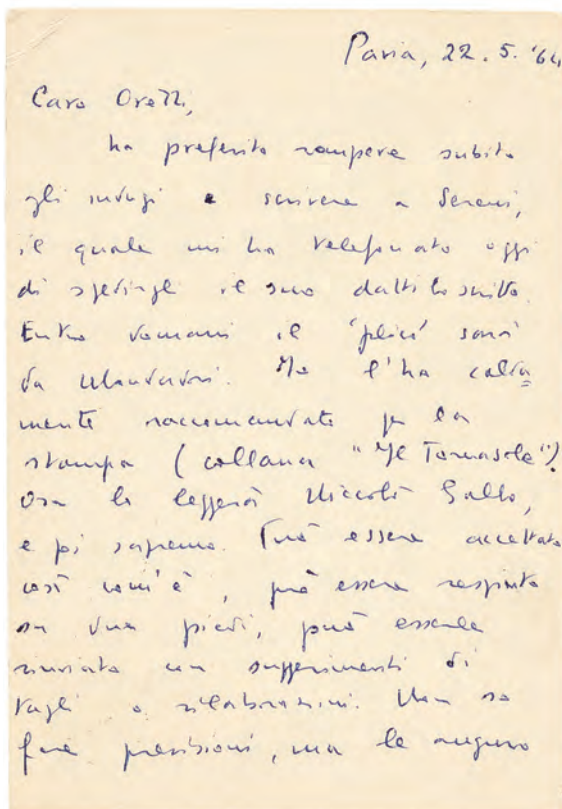 Pavia, 22.5.'64
Caro Orelli,
ho preferito rompere subito
gli indugi e scrivere a Sereni,
il quale mi ha telefonato oggi
di spedirgli il suo dattiloscritto.
Entro domani il 'plico' sarà
da Mondadori. Me l'ha calda
mente raccomandato per la
stampa (collana "Il Tornasole").
Ora lo leggerà Niccolò Gallo,
e poi sapremo. Può essere accettato
così com'è, può essere respinto
su due piedi, può essere
rinviato con suggerimenti di
tagli o rielaborazioni. Non so
fare previsioni, ma le auguro